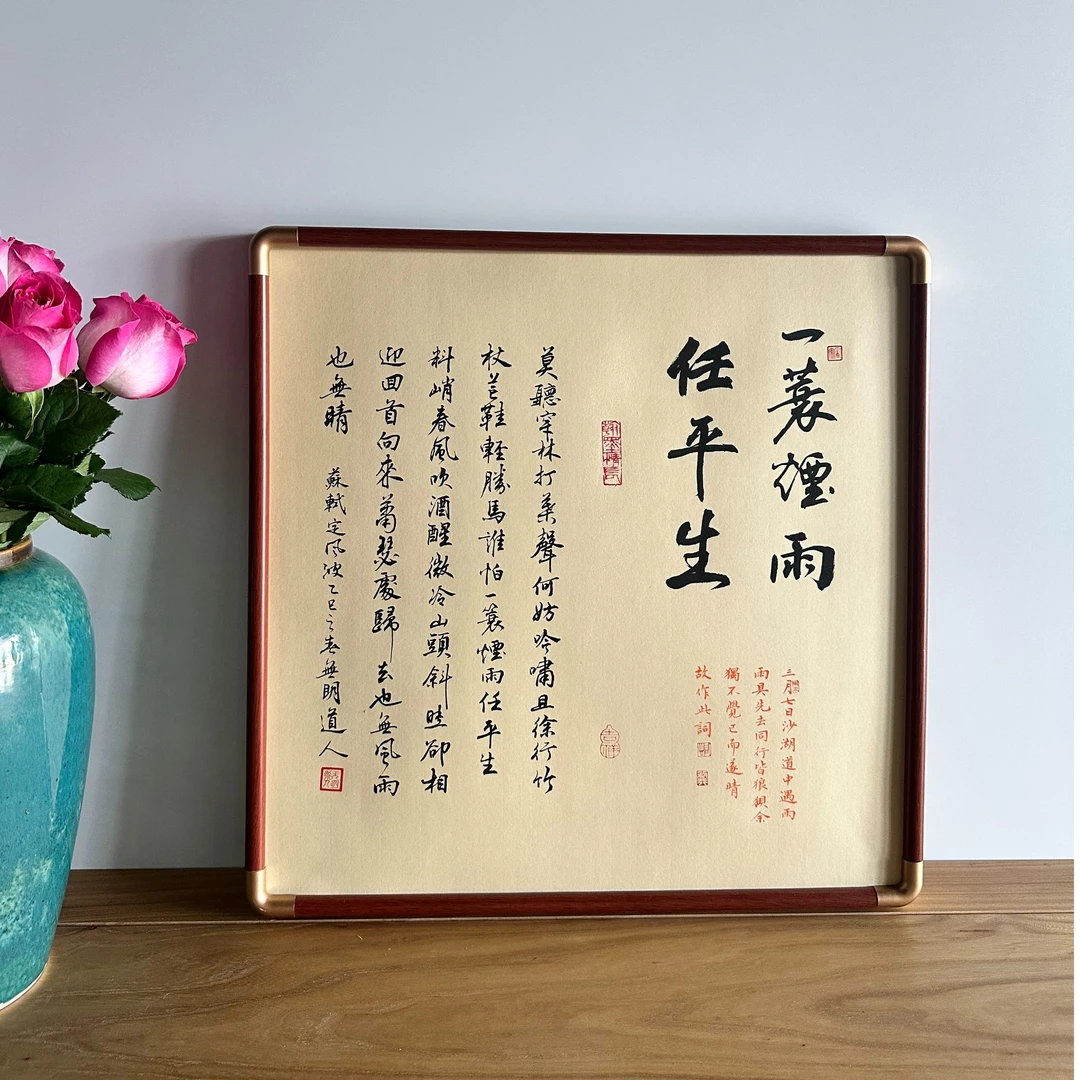 一蓑煙雨
任平生
三月七日沙湖道中遇雨
雨具先去同行皆狼狽余
獨不覺已而遂晴
故作此詞
翰墨情長
吉祥
莫聽穿林打葉聲何妨吟嘯且徐行竹
杖芒鞋輕勝馬誰怕一蓑煙雨任平生
料峭春風吹酒醒微冷山頭斜照卻相
迎回首向來蕭瑟處歸去也無風雨
也無晴 蘇軾定風波乙巳之春無明道人